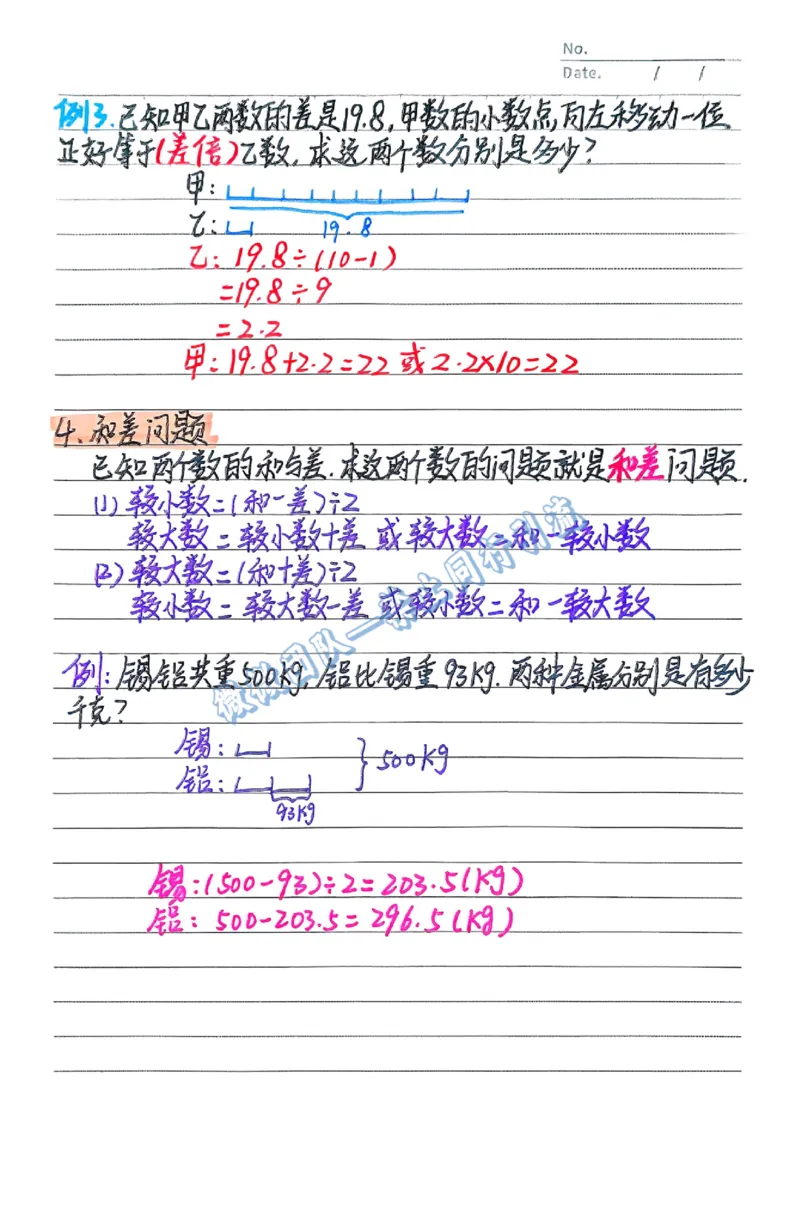 No.
Date. / /
例3.已知甲乙两数的差是19.8,甲数的小数点,向左移动一位
正好等于(差倍)乙数,求这两个数分别是多少?
甲:
乙: 19.8
乙: 19.8÷(10-1)
=19.8÷9
=2.2
甲:19.8+2.2=22 或2.2×10=22
4、和差问题
已知两个数的和与差.求这两个数的问题就是和差问题.
(1) 较小数=(和-差)÷2
较大数=较小数+差 或较大数=和-较小数
(2) 较大数=(和+差)÷2
较小数=较大数-差 或较小数=和-较大数
例:锡铝共重500kg,铝比锡重93kg.两种金属分别是有多少
千克?
锡:
铝:
500kg
93kg
锡:(500-93)÷2=203.5(kg)
铝: 500-203.5=296.5(kg)